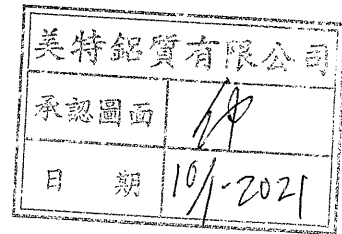 美特鋁質有限公司
承認圖面
日期 10/1-2021